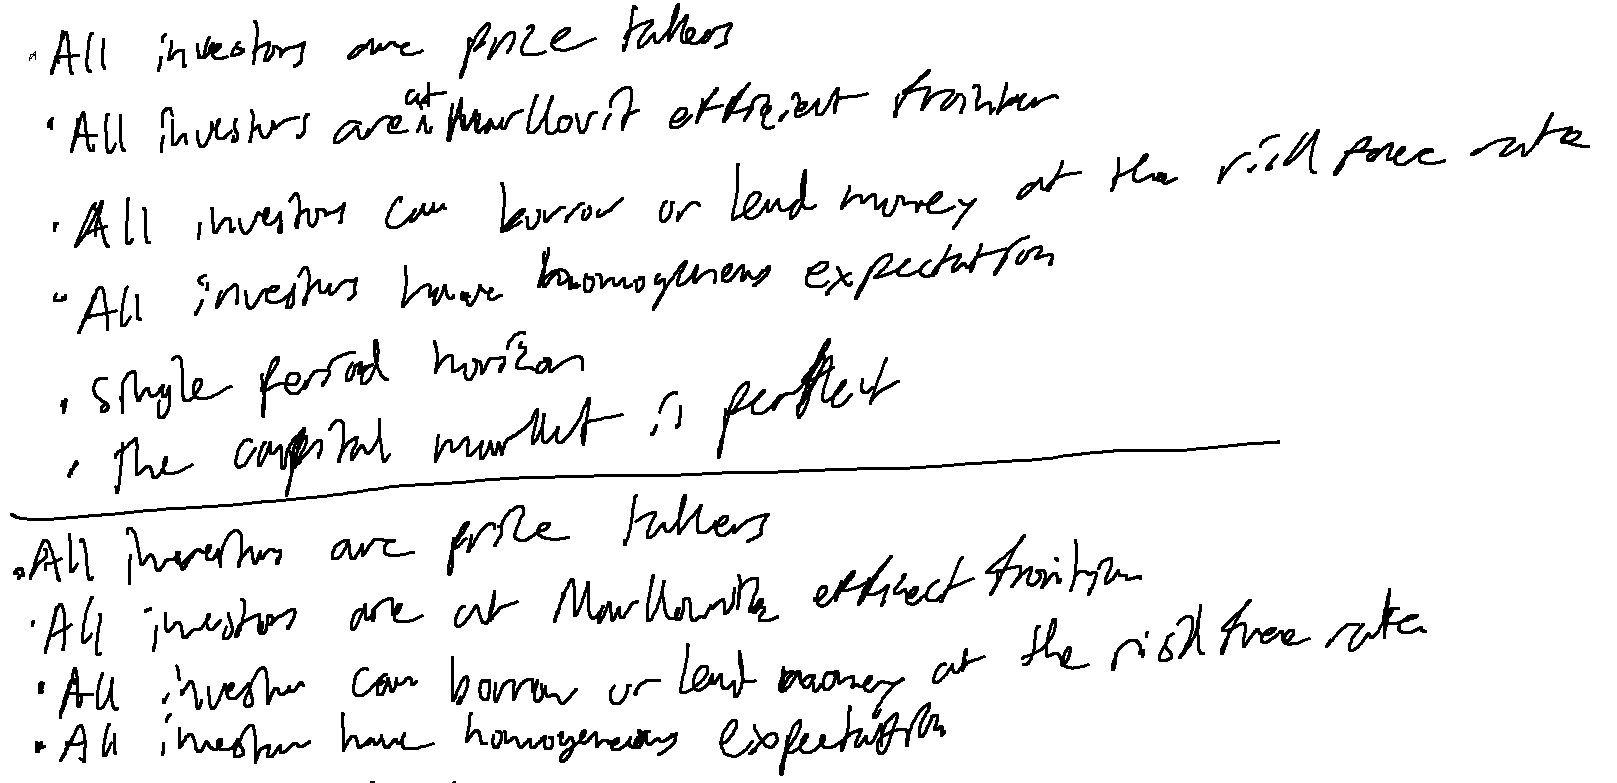 · All investors are price takers
· All investors are at Markovit efficient frointier
· All investors can borrow or lend money at the risk free rate
· All investors have homogenens expectation
· Single period horizon
· The capital market is perfect
· All investors are price takers
· All investors are at Markowitz efficect frointier
· All investor can borrow or lend money at the risk free rate
· All investor have homogeneous expectation